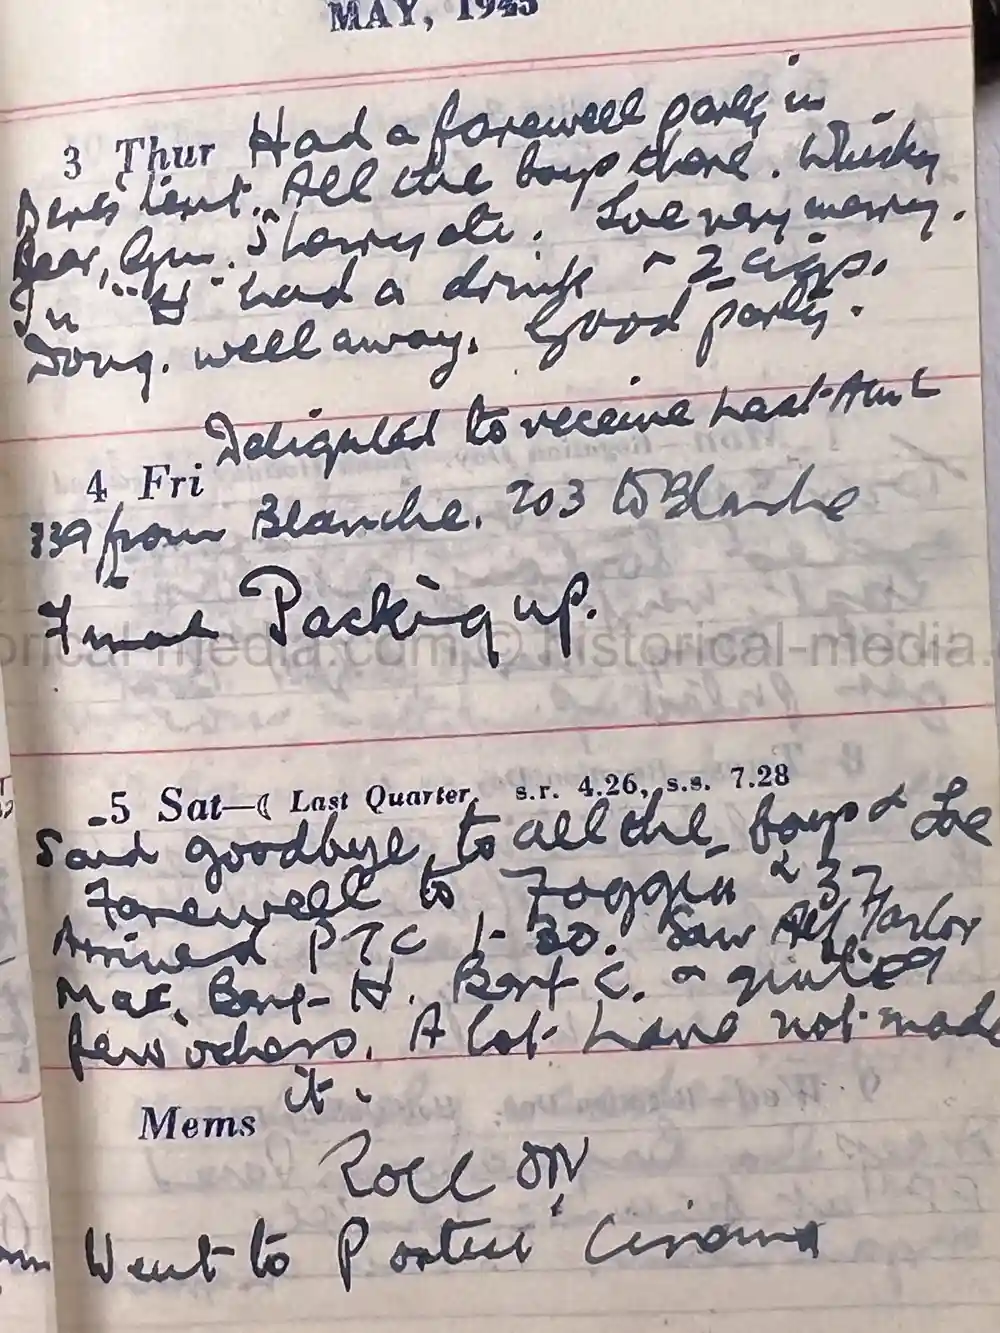 MAY, 1945
3 Thur Had a farewell party in
tent. All the boys there. Whisky
Beer, Gin, Sherry etc. Joe very merry.
In "H" had a drink ~ 2 cigs.
Doug. well away. Good party.
Delighted to receive last
4 Fri
339 from Blanche. 203 to Blanche
Final Packing up.
historical-media.com © historical-media.
5 Sat—☾ Last Quarter, s.r. 4.26, s.s. 7.28
Said goodbye to all the boys & Joe
Farewell to Foggia & 37
Arrived PTC 1-30. Saw Alf Taylor
Mac. H. Bert C. & quite a
few others. A lot have not made
it.
Mems
Roll ON
Went to Portici Cinema